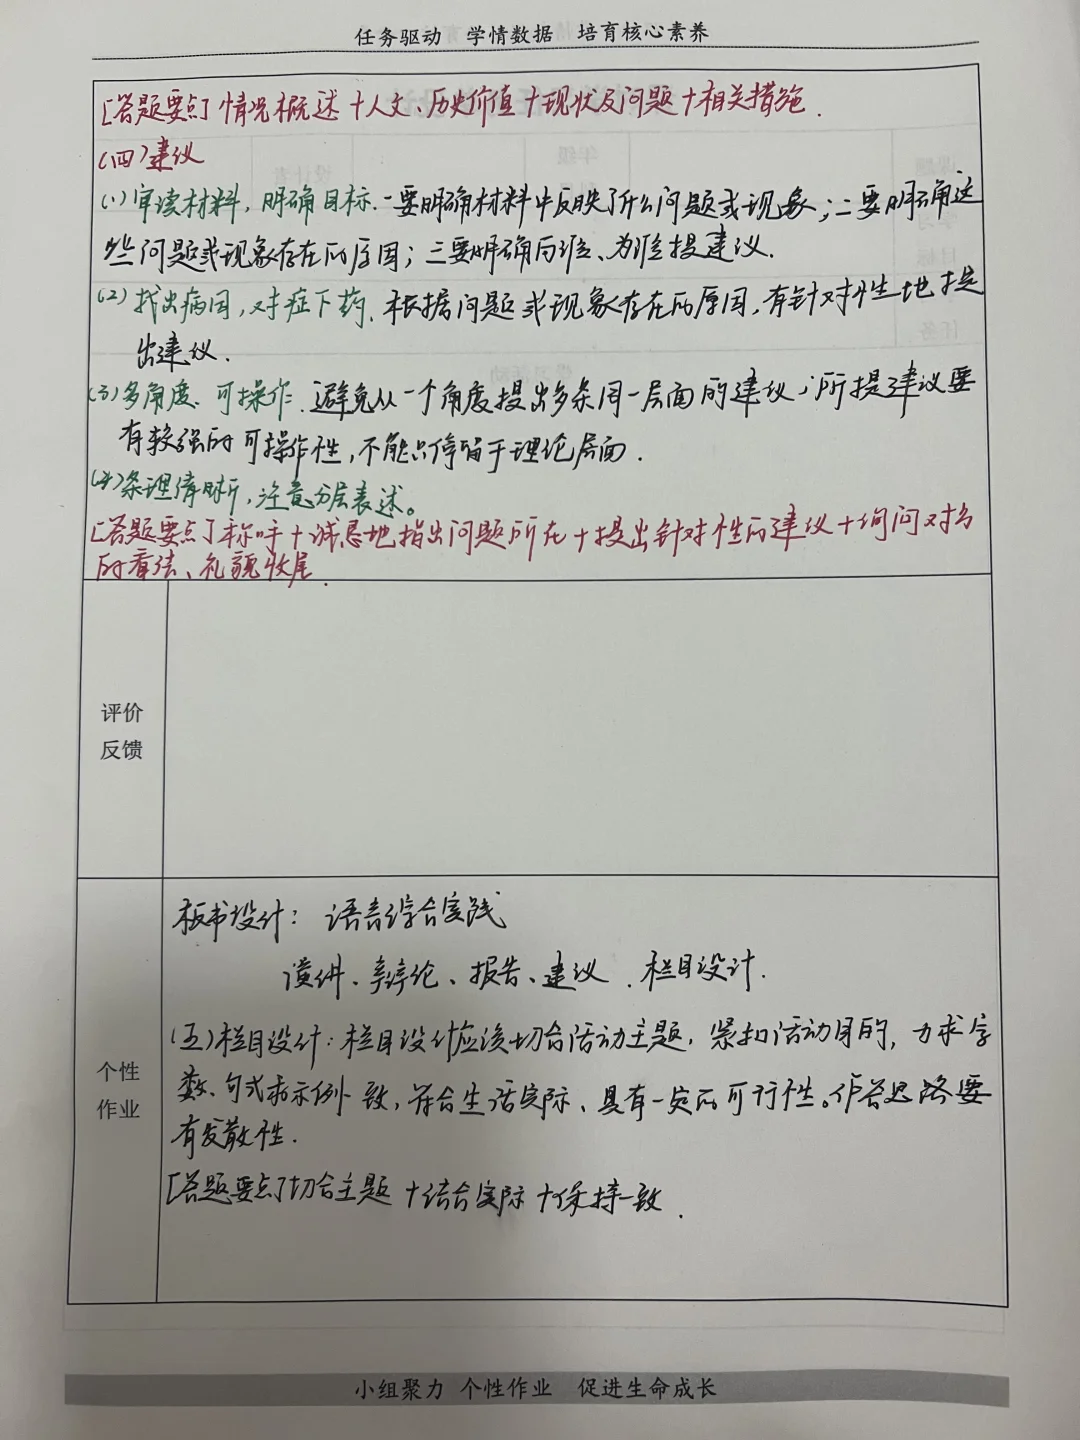 任务驱动 学情数据 培育核心素养
[答题要点] 情况概述+人文、历史价值+现状及问题+相关措施.
(四)建议
(1)审读材料,明确目标.一要明确材料中反映了什么问题或现象;二要明确这
些问题或现象存在的原因;三要明确向谁、为谁提建议.
(2)找出病因,对症下药.根据问题或现象存在的原因,有针对性地提
出建议.
(3)多角度、可操作.避免从一个角度提出多条同一层面的建议,所提建议要
有较强的可操作性,不能只停留于理论层面.
(4)条理清晰,注意分层表述。
[答题要点]称呼+诚恳地指出问题所在+提出针对性的建议+询问对方
的看法、礼貌收尾.
评价
反馈
板书设计: 语言综合实践
演讲、辩论、报告、建议、栏目设计.
(五)栏目设计:栏目设计应该切合活动主题,紧扣活动目的,力求字
数、句式与示例一致,符合生活实际、具有一定的可行性。作答思路要
有发散性.
[答题要点]切合主题+结合实际+保持一致.
个性
作业
小组聚力 个性作业 促进生命成长